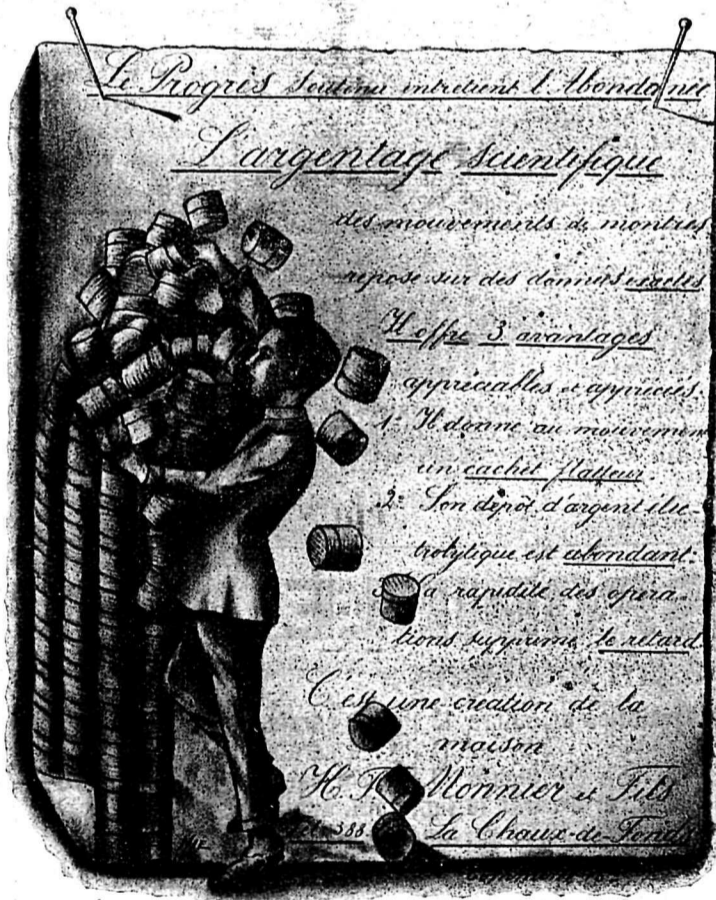 Le Progrès soutenu entretient l'Abondance
L'argentage scientifique
des mouvements de montres
repose sur des données exactes
Il offre 3 avantages
appréciables et appréciés.
1° Il donne au mouvement
un cachet flatteur
2° Son dépôt d'argent élec-
trolytique est abondant.
La rapidité des opéra-
tions supprime le retard
C'est une création de la
maison
H. Monnier & Fils
Tél. 388 La Chaux-de-Fonds